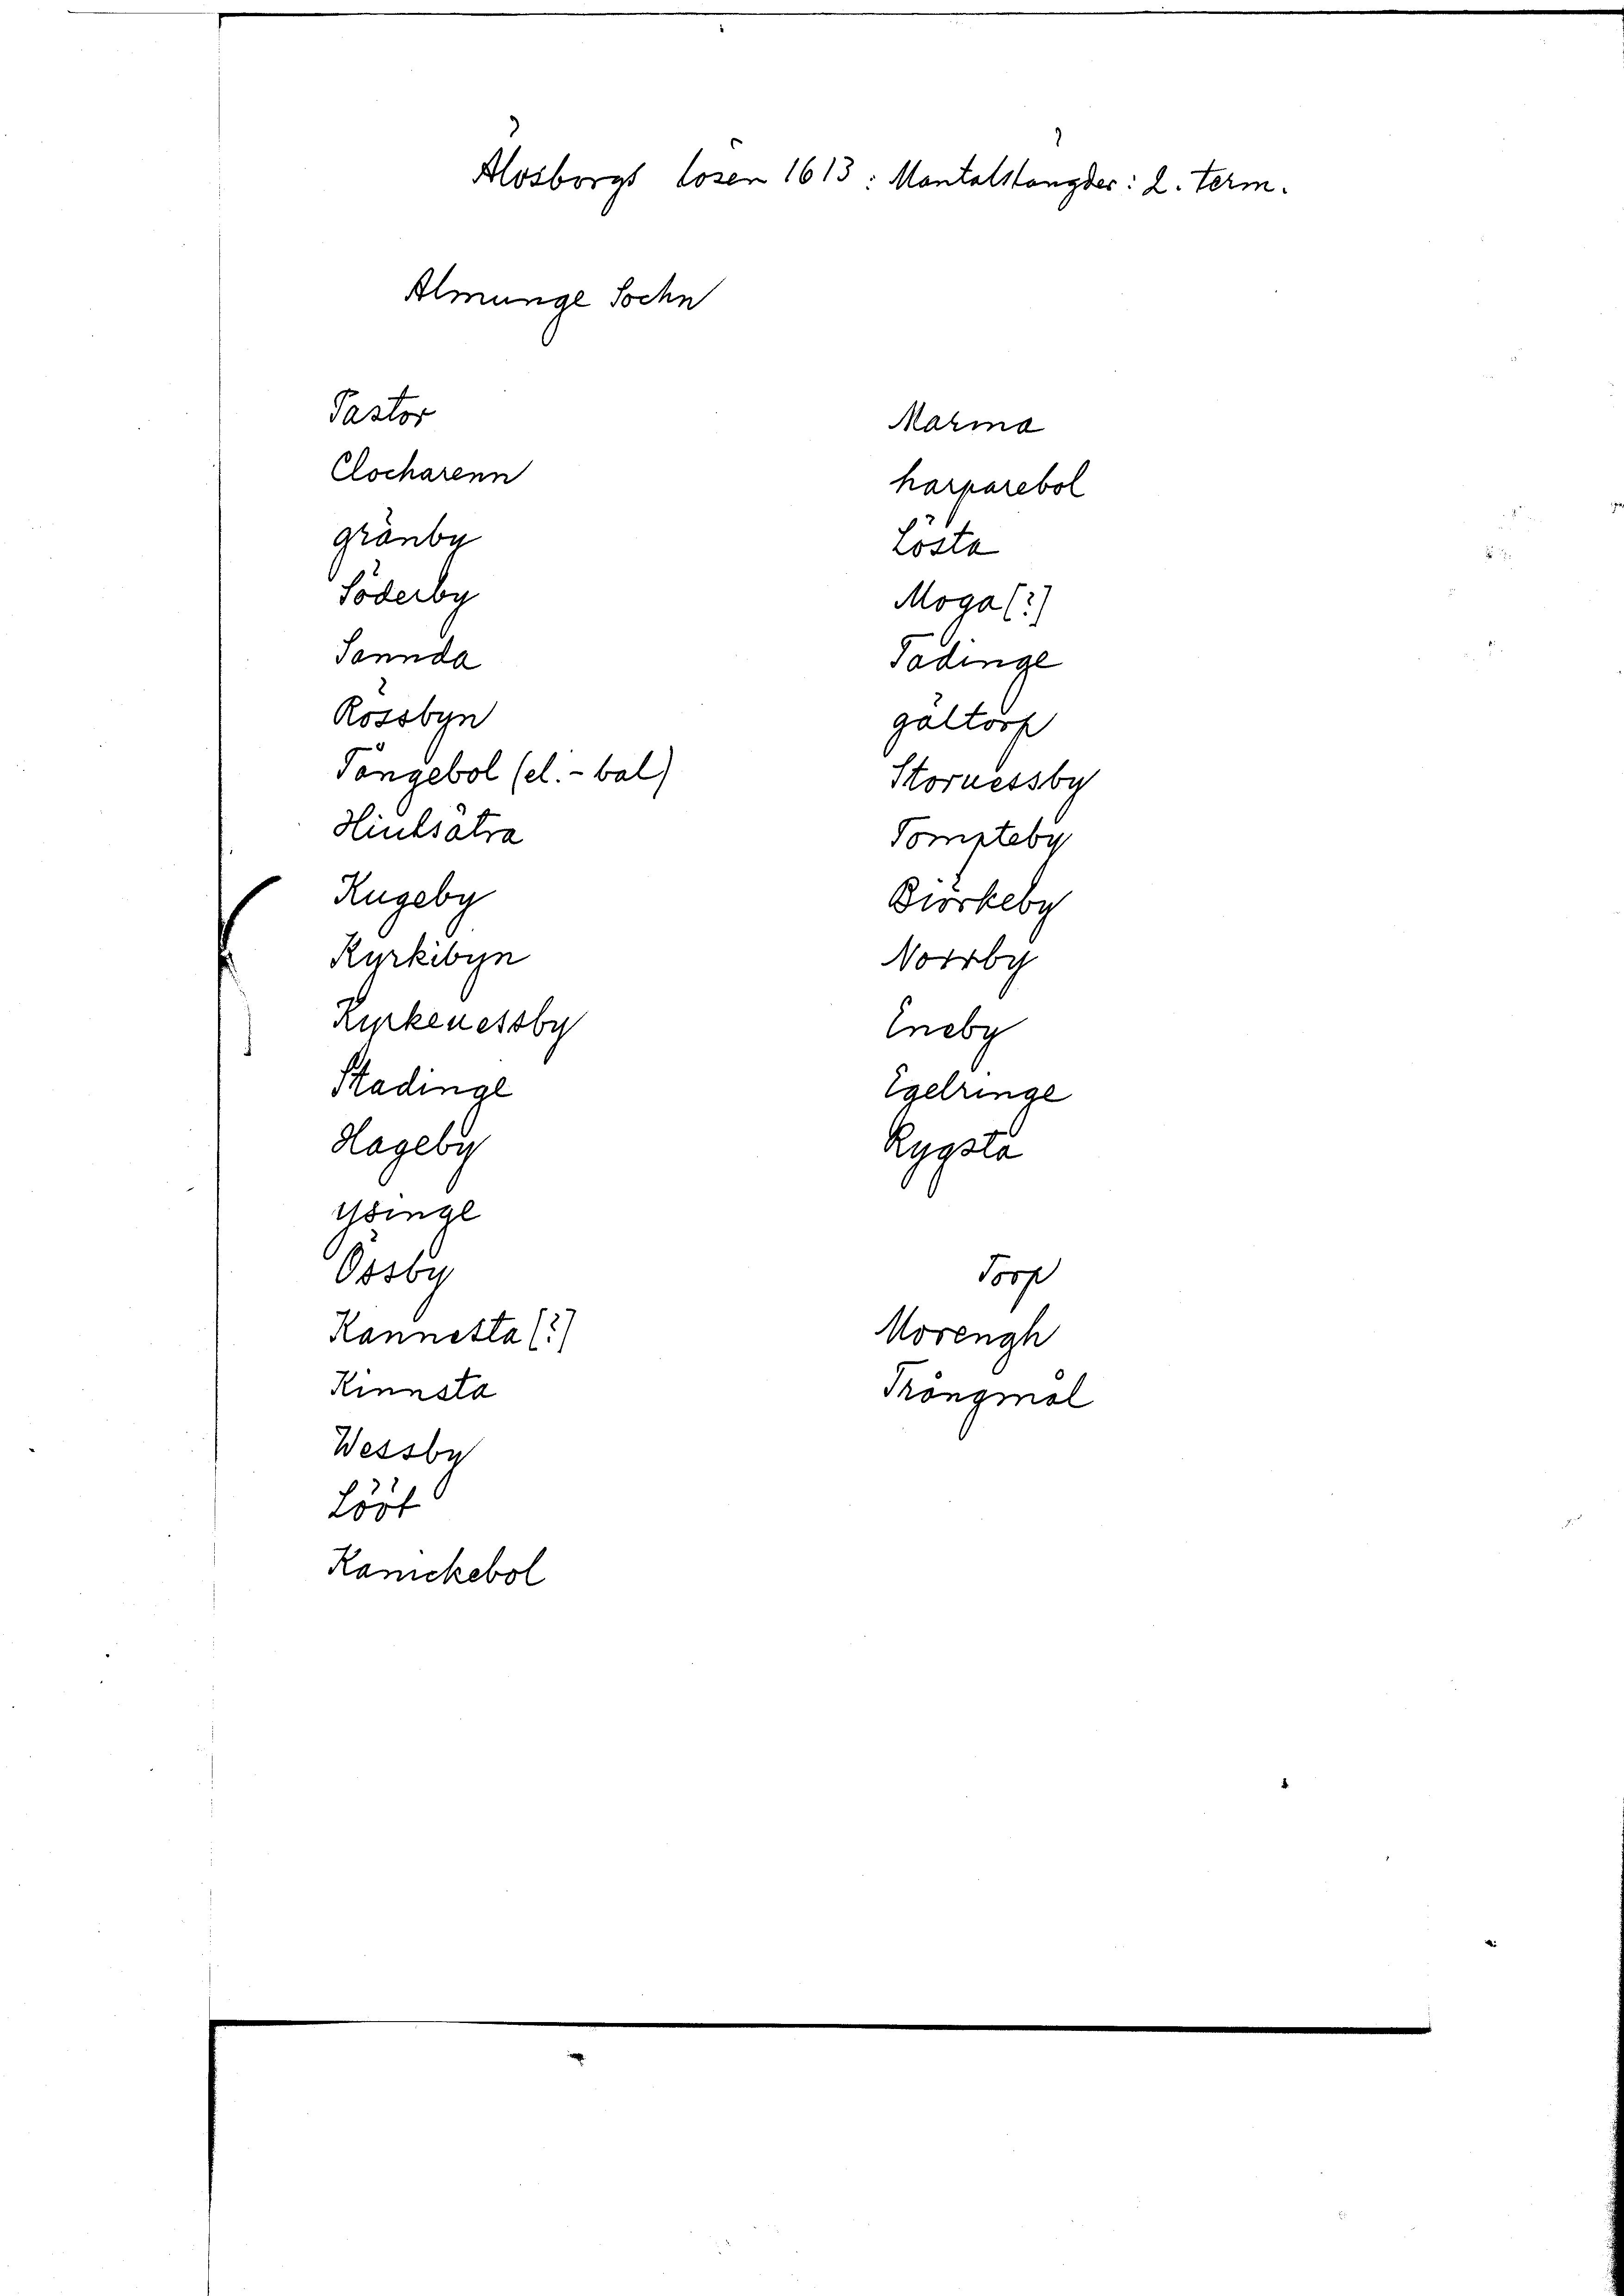 Älvsborgs lösen 1613: Mantalslängder: 2. term.
Almunge Sochn
Pastor
Clocharenn
gränby
Söderby
Sannda
Rössbyn
Tångebol (el. -bal)
Kugeby
Kyrkibyn
Kyrkenessby
Stadinge
Hageby
Ysinge
Össby
Kannesta (?)
Kinnsta
Wessby
Lööt
Kanickebol
Marma
harparebol
Lösta
Moga (?)
Tadinge
gältorp
Stornessby
Tompteby
Biörkeby
Norrby
Eneby
Egelringe
Rygsta
Torp
Morengh
Trångmål